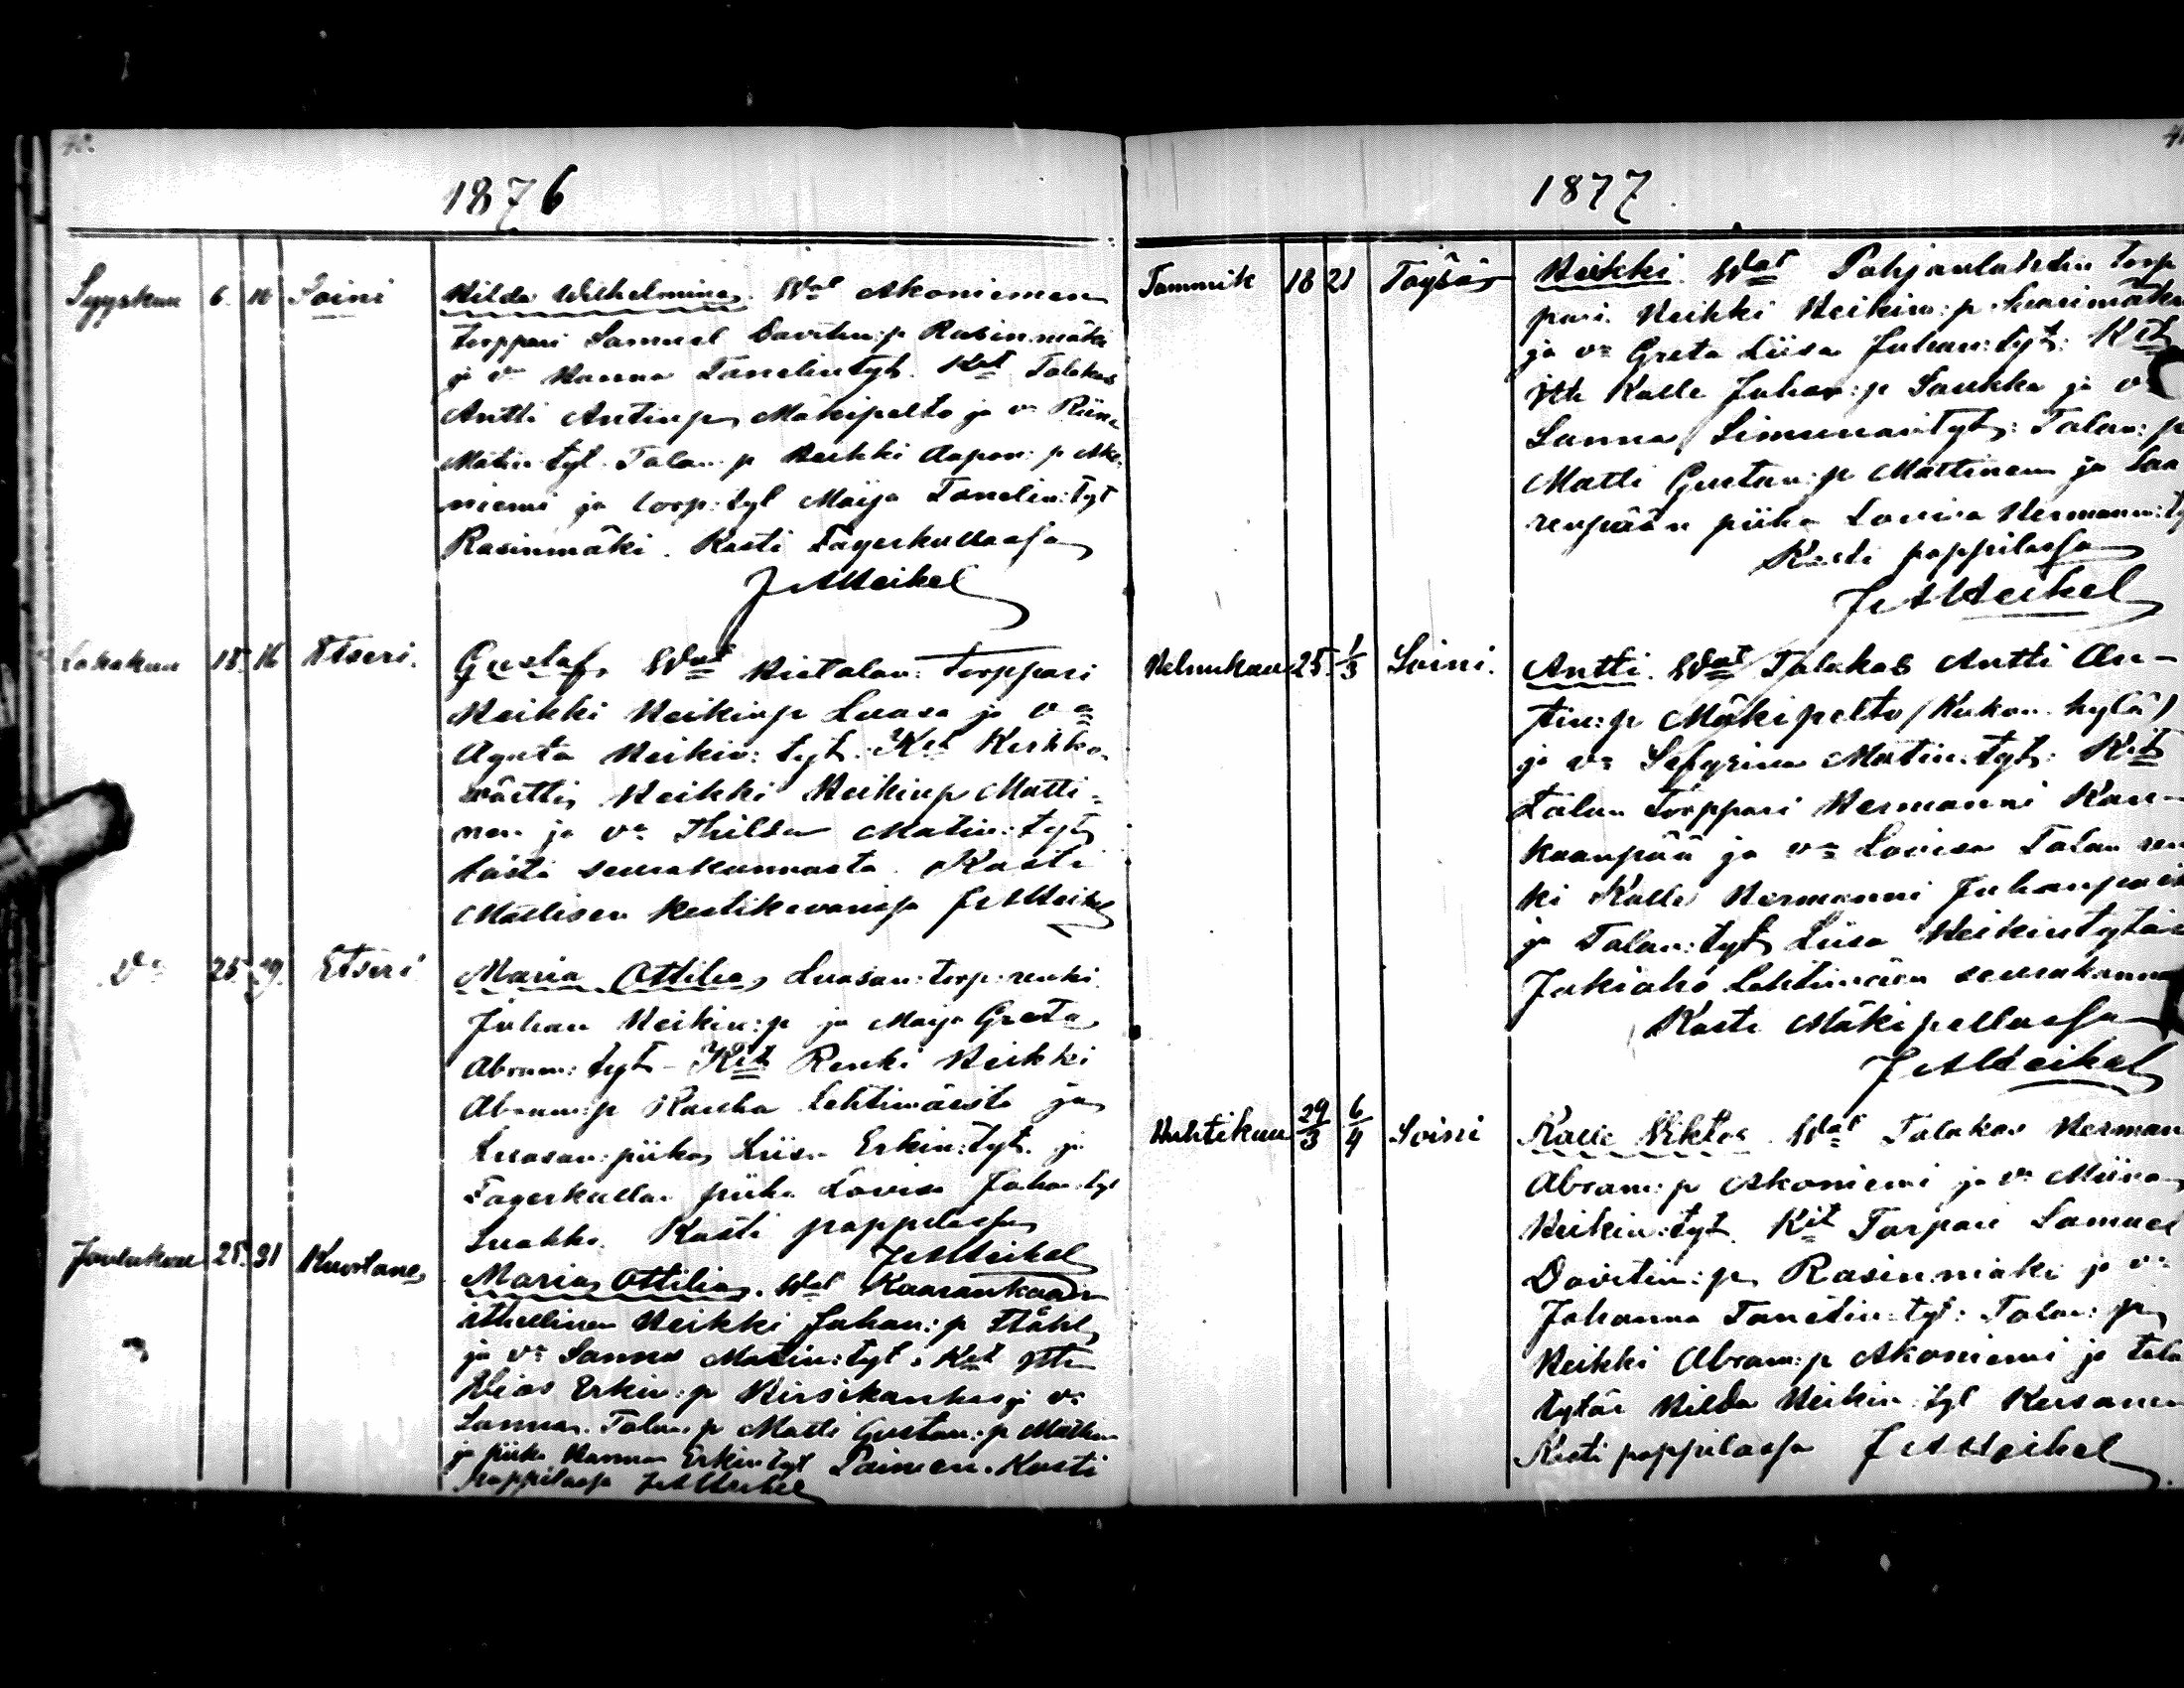 1876
Syyskuu 6. 10 Soini Hilda Wilhelmina. Wat Akoniemen
torppari Samuel Davitin:p Rasinmäki
ja vo Hanna Tanelintyt. Kit Talokas
Antti Antinp Mäkipelto ja vo Riina
Matin tyt. Talon p Heikki Aapon: p Ako
niemi ja torp: tyt Maija Tanelin: tyt
Rasinmäki. Kasti Fagerkullassa
J A Heikel
Lokakuu 15. 16 Etseri. Gustaf. Wat Hietalan: torppari
Heikki Heikinp Luasa ja vo
Agata Heikin: tyt. Kit Kirkko
väärtti Heikki Heikinp Matti=
nen ja vo Thilda Matin: tyt
tästä seurakunnasta. Kasti
Mattisen kestikievarissa J A Heikel
Vo 25 29. Etseri Maria Ottilia, Luasan: torp: renki
Juhan Heikin: p ja Maija Greta
Abram: tyt - Kit Renki Heikki
Abram: p Rauha Lehtimäestä ja
Luasan: piika Liisa Erkin: tyt. ja
Fagerkullan piika Lovisa Juhan tyt
Luakko. Kasti pappilassa
J A Heikel
Joulukuu 25. 31 Kuortane Maria Ottilia. Wat Kaarankaan
itsellinen Heikki Juhan: p Ståhl
ja vo Sanna Matin: tyt. Kit Itse
Elias Erkin: p Hirsikankas ja vo
Sanna. Talon p Matti Gustan: p Mattinen
ja piika Hanna Erkin tyt Painen. Kasti
pappilassa J A Heikel
1877.
Tammik 18 21 Töysä Heikki. Wat Pohjanlahden torp
pari Heikki Heikin: p
ja vo Greta Liisa Juhan: tyt: Kit
Its Kalle Juhan: p Saukko ja vo
Sanna Simunan tyt: Talon: p
Matti Gustan: p Mattinen ja Saa
renpään piika Lovisa Hermanni: ty
Kasti pappilassa
J A Heikel
Helmikuu 25. 1/3 Soini. Antti. Wat Talokas Antti An-
tin: p Mäkipelto (Kukon kylä)
ja vo Sefyrina Matin. tyt: Kit
talon torppari Hermanni Kan-
kaanpää ja vo Lovisa Talon ren
ki Kalle Hermanni Juhanpoik
ja Talon: tyt Liisa Heikintytär
Jukiaho Lehtimäen seurakunna
Kasti Mäkipellossa
J A Heikel
Huhtikuu 29/3 6/4 Soini Kalle Viktor. Wat Talokas Herman
Abram: p Akoniemi ja vo Miina
Heikin: tyt. Kit Torpari Samuel
Davitin: p Rasinmäki ja vo
Johanna Tanelin tyt: Talon: p
Heikki Abram: p Akoniemi ja talo
tytär Hilda Heikin: tyt
Kasti pappilassa J A Heikel